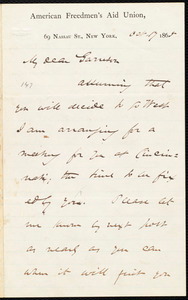 American Freedmen's Aid Union,
69 Nassau St., New York, Oct 17 1865
My dear Garrison
assuming that
you will decide to go West
I am arranging for a
meeting for you at Cincin-
nati; the time to be fix
ed by you. Please let
me know by next post
as nearly as you can
when it will suit you